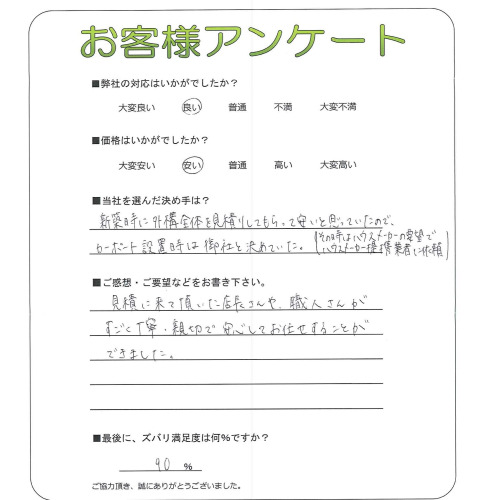 お客様アンケート
■弊社の対応はいかがでしたか？
大変良い 良い 普通 不満 大変不満
■価格はいかがでしたか？
大変安い 安い 普通 高い 大変高い
■当社を選んだ決め手は？
新築時に外構全体を見積りしてもらって安いと思っていたので、
カーポート設置時は御社と決めていた。
(その時はハウスメーカーの要望で
ハウスメーカー提携業者に依頼)
■ご感想・ご要望などをお書き下さい。
見積に来て頂いた店長さんや、職人さんが
すごく丁寧・親切で安心してお任せすることが
できました。
■最後に、ズバリ満足度は何%ですか？
90 %
ご協力頂き、誠にありがとうございました。